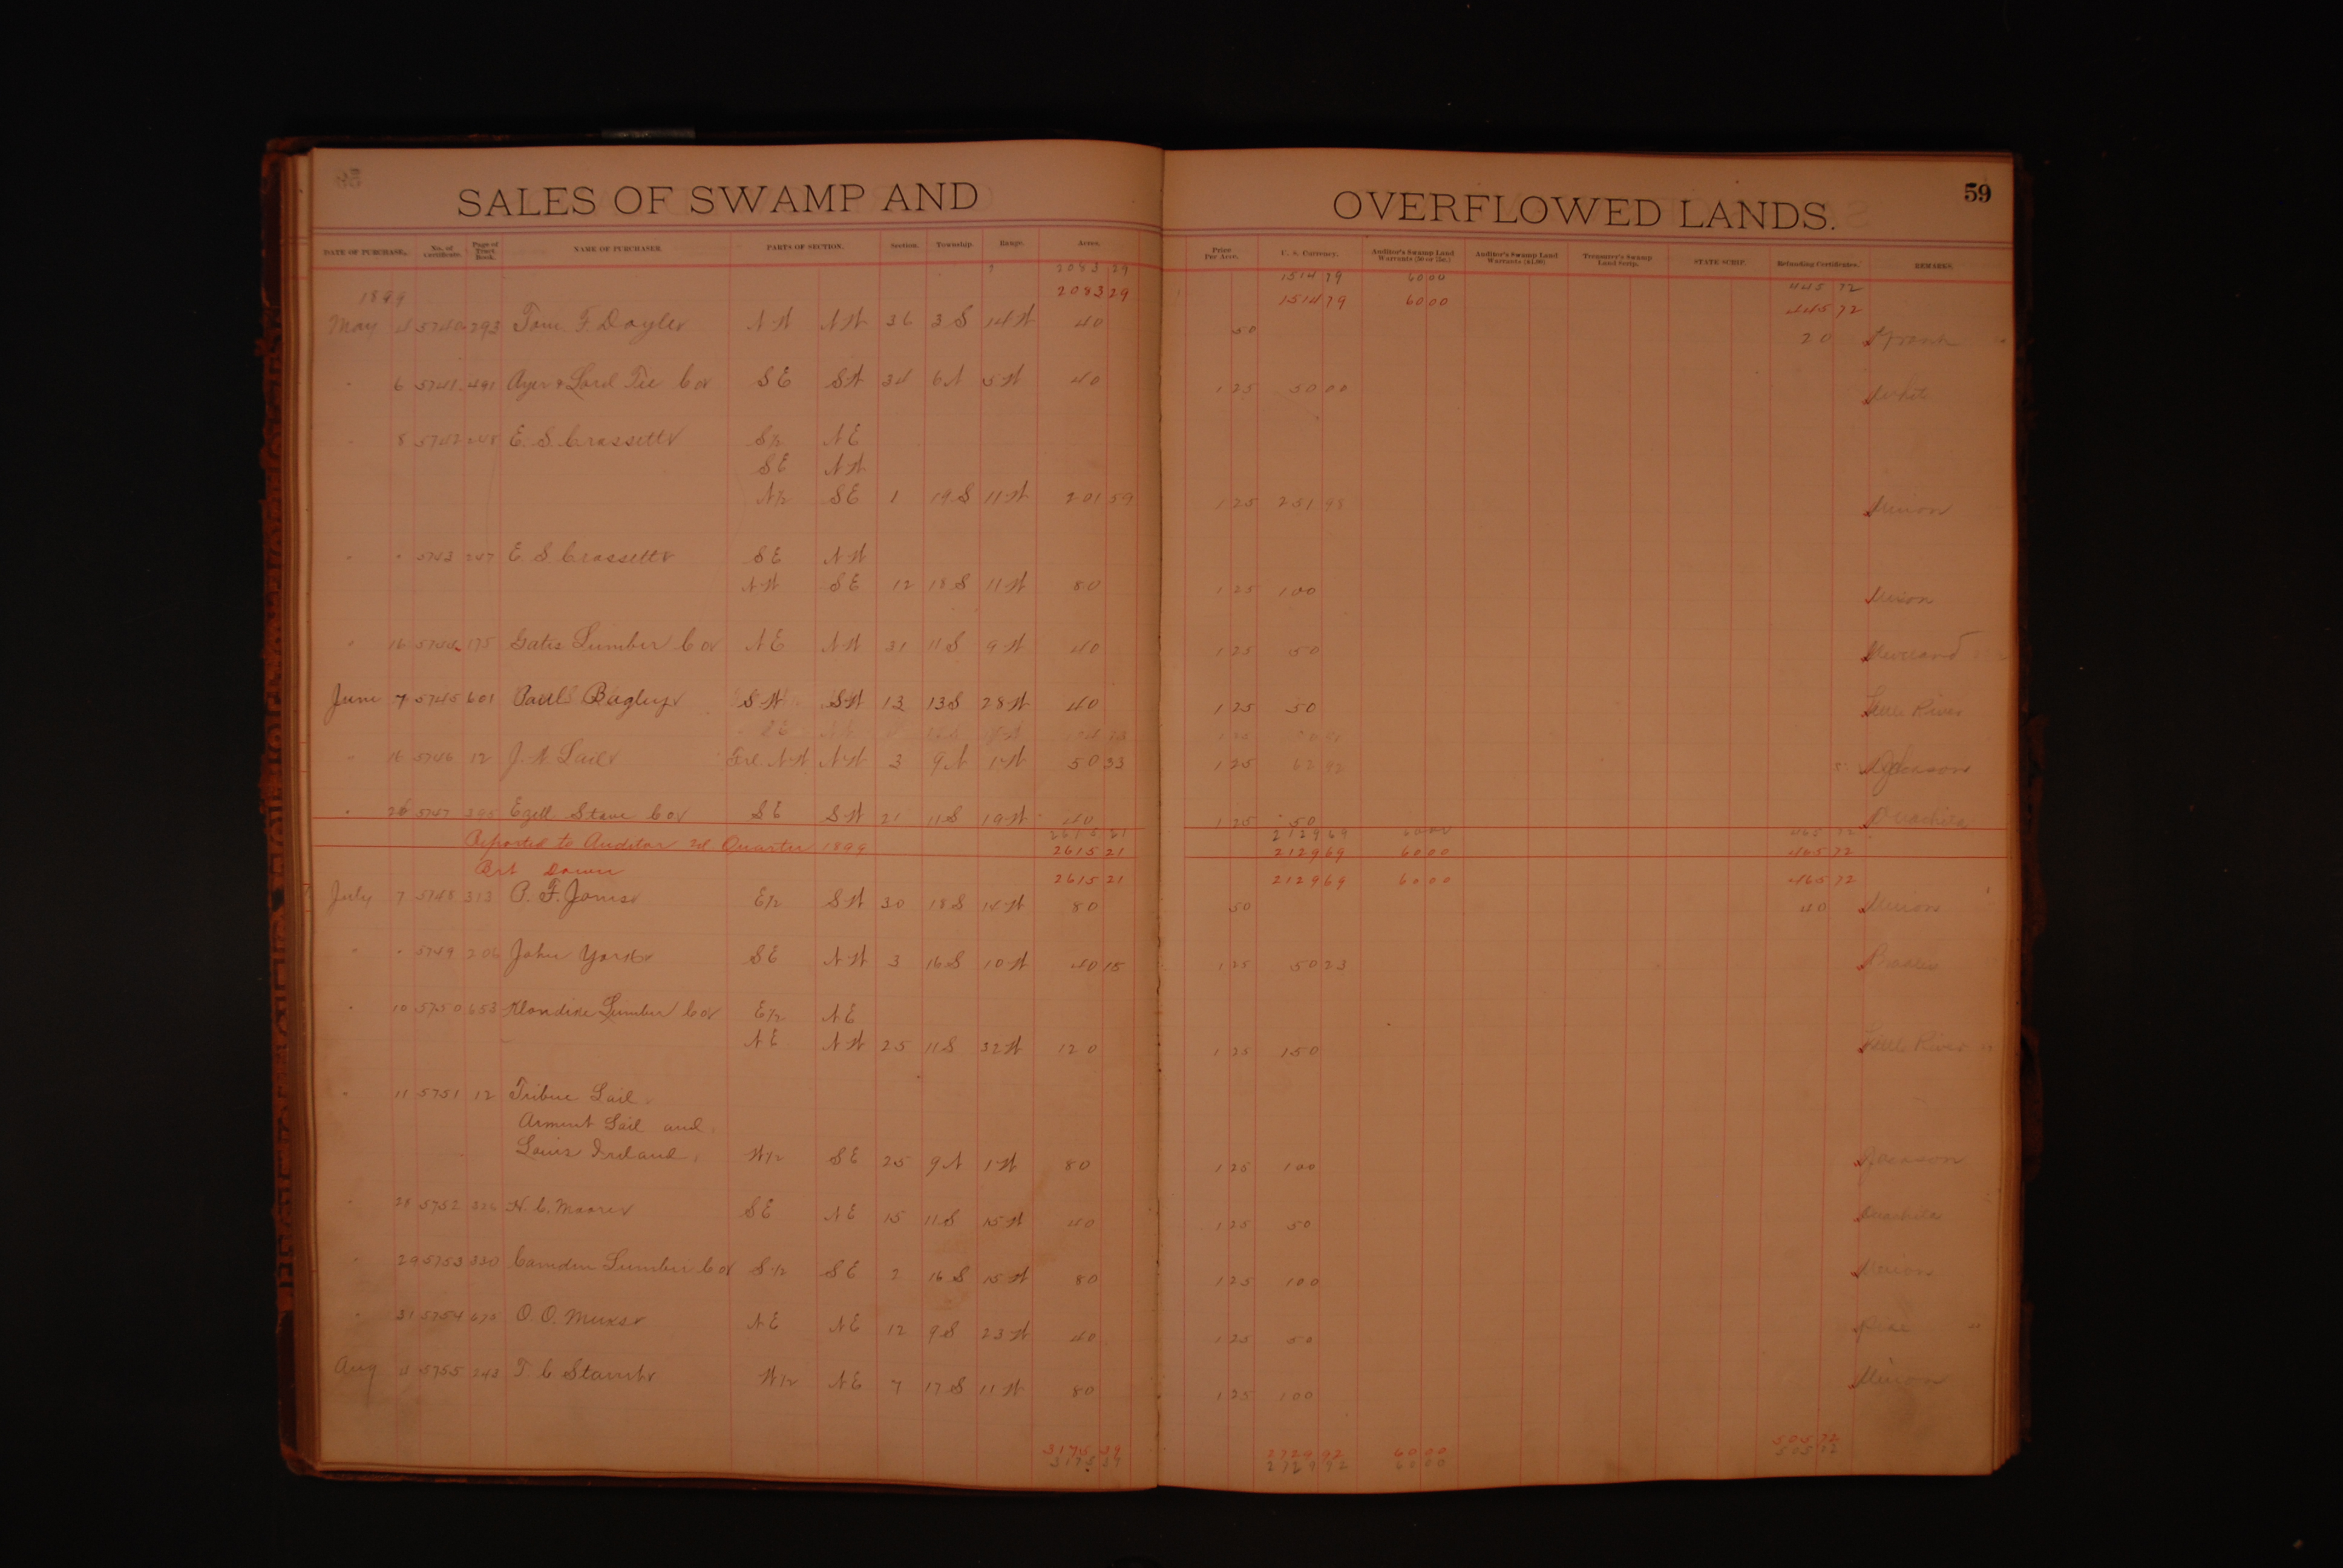 SALES OF SWAMP AND OVERFLOWED LANDS. 59
DATE OF PURCHASE. No. of Certificate. Page of Tract Book. NAME OF PURCHASER. PARTS OF SECTION. Section. Township. Range. Acres. Price Per Acre. U. S. Currency. Auditor's Swamp Land Warrants (50 or 75c.) Auditor's Swamp Land Warrants ($1.00) Treasurer's Swamp Land Scrip. STATE SCRIP. Refunding Certificates. REMARKS.
2083 29 1514 79 60 00 445 72
1899 2083 29 1514 79 60 00 445 72
May 4 5740 293 Tom F. Doyle N W N W 36 3 S 14 W 40 50 20
" 6 5741 491 Ayer & Lord Tie Co S E S W 34 6 N 5 W 40 1 25 50 00 White
" 8 5742 248 E. S. Crossett S 1/2 N E
S E N W
N 1/2 S E 1 19 S 11 W 201 59 1 25 251 99 Union
" " 5743 247 E S Crossett S E N W
N W S E 12 18 S 11 W 80 1 25 100 Union
" 16 5744 175 Gates Lumber Co N E N W 31 11 S 9 W 40 1 25 50 Cleveland
June 7 5745 601 Paul Bagley S W S W 13 13 S 28 W 40 1 25 50 Little River
" 16 5746 12 J. N. Lail Frl. N W N W 3 9 N 1 W 50 33 1 25 62 92 Jackson
" 26 5747 395 Ezell Stave Co S E S W 21 11 S 19 W 40 1 25 50 Ouachita
2615 21 2129 69 60 00 465 72
Reported to Auditor 2d Quarter 1899 2615 21 2129 69 60 00 465 72
Brt Down 2615 21 2129 69 60 00 465 72
July 7 5748 313 P. F. Jones E 1/2 S W 30 18 S 14 W 80 50 40 Union
" " 5749 206 John York S E N W 3 16 S 10 W 40 18 1 25 50 23 Bradley
" 10 5750 653 Klondike Lumber Co E 1/2 N E
N E N W 25 11 S 32 W 120 1 25 150 Little River
" 11 5751 12 Tribue Lail
Arment Lail and
Louis Ireland W 1/2 S E 25 9 N 1 W 80 1 25 100 Jackson
" 28 5752 326 H. C. Moore S E N E 15 11 S 15 W 40 1 25 50 Ouachita
" 29 5753 330 Camden Lumber Co S 1/2 S E 2 16 S 15 W 80 1 25 100 Union
" 31 5754 675 O. O. N E N E 12 9 S 23 W 40 1 25 50
Aug 5755 243 T. C. W 1/2 N E 7 17 S 11 W 80 1 25 100 Union
3175 39 2729 92 60 00 505 72
3175 39 2729 92 60 00 505 72